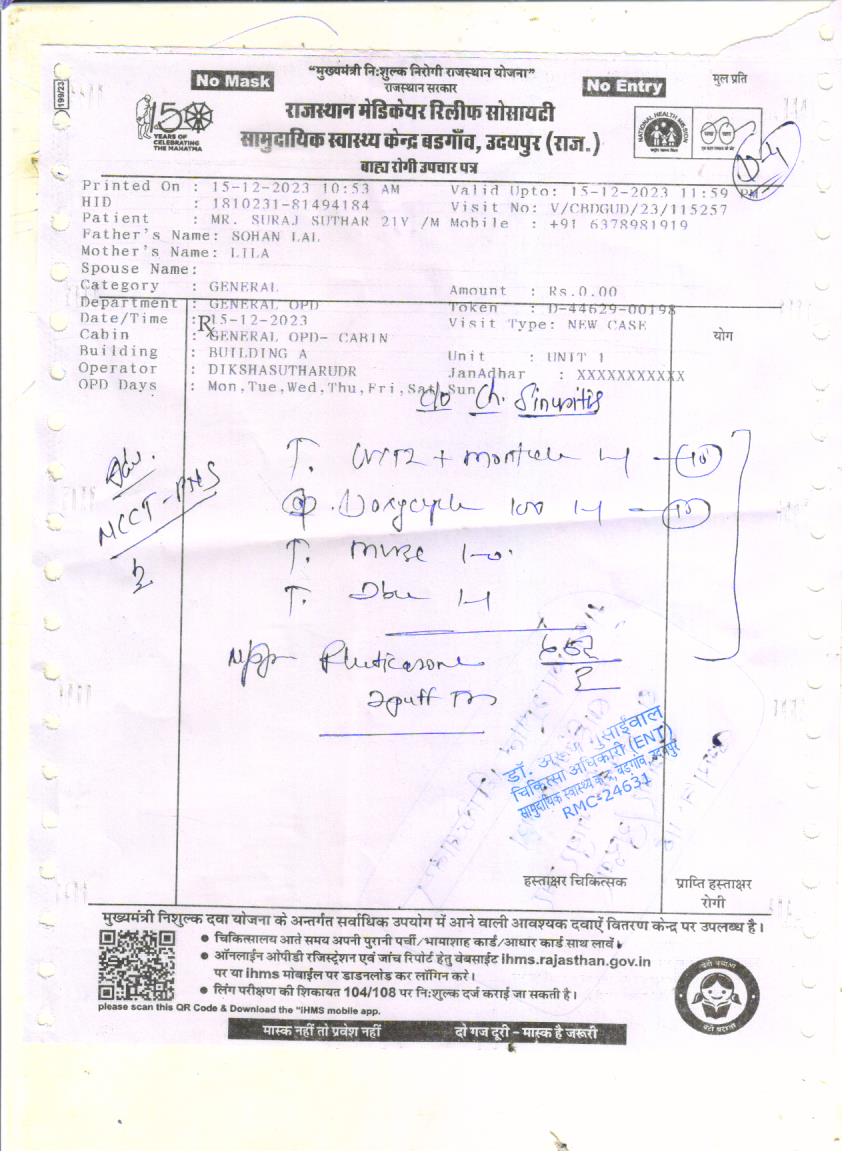 199/23
No Mask
"मुख्यमंत्री नि:शुल्क निरोगी राजस्थान योजना"
राजस्थान सरकार
No Entry
मुल प्रति
राजस्थान मेडिकेयर रिलीफ सोसायटी
सामुदायिक स्वास्थ्य केन्द्र बडगाँव, उदयपुर (राज.)
बाह्य रोगी उपचार पत्र
150
YEARS OF
CELEBRATING
THE MAHATMA
NATIONAL HEALTH MISSION
D-4
Printed On : 15-12-2023 10:53 AM Valid Upto: 15-12-2023 11:59 PM
HID : 1810231-81494184 Visit No: V/CBDGUD/23/115257
Patient : MR. SURAJ SUTHAR 21Y /M Mobile : +91 6378981919
Father's Name: SOHAN LAL
Mother's Name: LILA
Spouse Name:
Category : GENERAL Amount : Rs.0.00
Department : GENERAL OPD Token : D-44629-00198
Date/Time : 15-12-2023 Visit Type: NEW CASE
Rx
योग
Cabin : GENERAL OPD- CABIN
Building : BUILDING A Unit : UNIT 1
Operator : DIKSHASUTHARUDR JanAdhar : XXXXXXXXXXX
OPD Days : Mon,Tue,Wed,Thu,Fri,Sat,Sun
c/o Ch. Sinusitis
Adv.
NCCT-PNS
T. + 1-1 - 10
Doxycycle 100 1-1 - 10
T. MVBC 1-0
T. 1-1
Fluticasone
2puff
डॉ. अरूण गुसाईवाल
चिकित्सा अधिकारी (ENT)
सामुदायिक स्वास्थ्य केन्द्र, बेड़गाँव, उदयपुर
RMC-24631
हस्ताक्षर चिकित्सक
प्राप्ति हस्ताक्षर
रोगी
मुख्यमंत्री निशुल्क दवा योजना के अन्तर्गत सर्वाधिक उपयोग में आने वाली आवश्यक दवाऐं वितरण केन्द्र पर उपलब्ध है।
● चिकित्सालय आते समय अपनी पुरानी पर्ची/भामाशाह कार्ड/आधार कार्ड साथ लावें।
● ऑनलाईन ओपीडी रजिस्ट्रेशन एवं जांच रिपोर्ट हेतु वेबसाईट ihms.rajasthan.gov.in
पर या ihms मोबाईल पर डाडनलोड कर लॉगिन करे।
● लिंग परीक्षण की शिकायत 104/108 पर नि:शुल्क दर्ज कराई जा सकती है।
please scan this QR Code & Download the "IHMS mobile app.
मास्क नहीं तो प्रवेश नहीं दो गज दूरी - मास्क है जरूरी